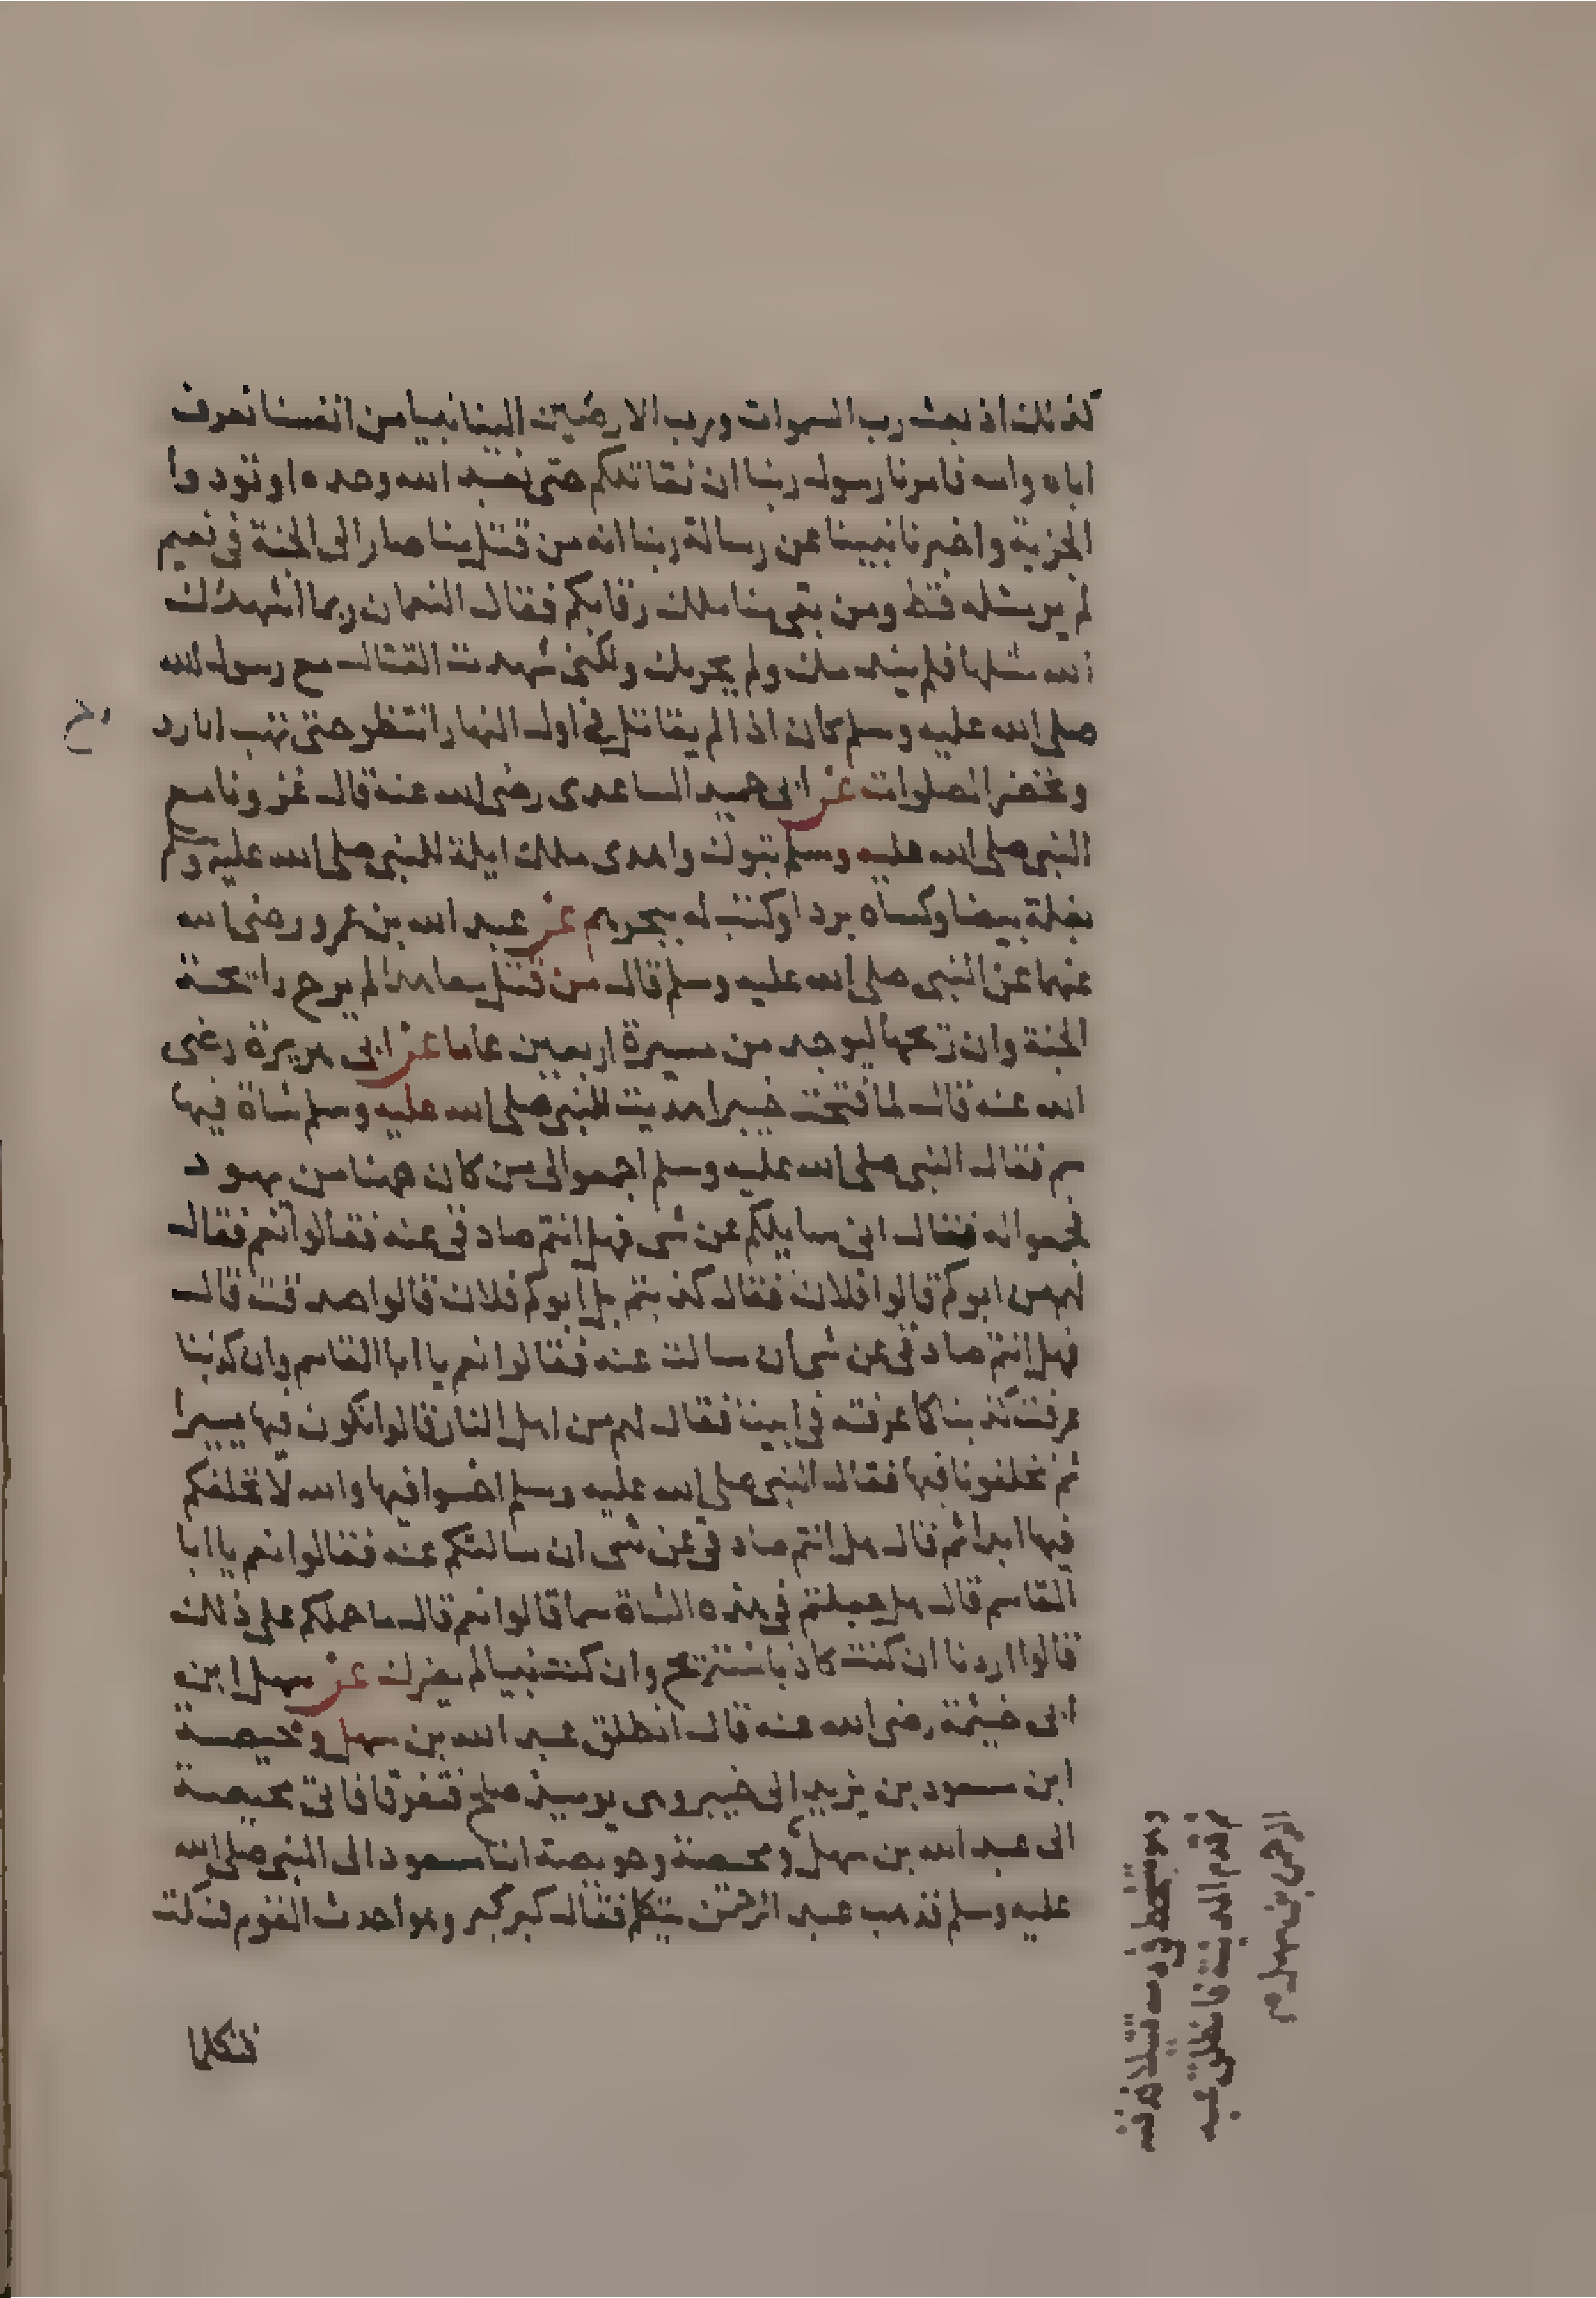 كذلك اذ بعث رب السموات ورب الارضين الينا نبيا من انفسنا نعرف
اباه وامه فامرنا رسول ربنا ان نقاتلكم حتى نعبد الله وحده او تودوا
الجزية واخبرنا نبينا عن رسالة ربنا انه من قتل منا صار الى الجنة في نعيم
لم ير مثله قط ومن بقي منا ملك رقابكم فقال النعمان ربما اشهدك
الله مثلها فلم يندمك ولم يخزك ولكني شهدت القتال مع رسول الله
صلى الله عليه وسلم كان اذا لم يقاتل في اول النهار انتظر حتى تهب الارو
وتحضر الصلوات عن ابي حميد الساعدي رضي الله عنه قال غزونا مع
النبي صلى الله عليه وسلم تبوك واهدى ملك ايلة للنبي صلى الله عليه وسلم
بغلة بيضا وكساه بردا وكتب له ببحرهم عن عبد الله بن عمرو رضي الله
عنهما عن النبي صلى الله عليه وسلم قال من قتل معاهدا لم يرح رائحة
الجنة وان ريحها ليوجد من مسيرة اربعين عاما عن ابي هريرة رضي
الله عنه قال لما فتحت خيبر اهديت للنبي صلى الله عليه وسلم شاة فيها
سم فقال النبي صلى الله عليه وسلم اجمعوا الي من كان ههنا من يهود
فجمعوا له فقال اني سايلكم عن شي فهل انتم صادقي عنه فقالوا نعم فقال
لهم من ابوكم قالوا فلان فقال كذبتم بل ابوكم فلان قالوا صدقت قال
فهل انتم صادقي عن شي ان سالت عنه فقالوا نعم يا ابا القاسم وان كذبنا
عرفت كذبنا كما عرفته في ابينا فقال لهم من اهل النار قالوا نكون فيها يسيرا
ثم تخلفونا فيها فقال النبي صلى الله عليه وسلم اخسوا فيها والله لا نخلفكم
فيها ابدا ثم قال هل انتم صادقي عن شي ان سالتكم عنه فقالوا نعم يا ابا
القاسم قال هل جعلتم في هذه الشاة سما قالوا نعم قال ما حملكم على ذلك
قالوا اردنا ان كنت كاذبا نستريح وان كنت نبيا لم يضرك عن سهل ابن
ابي خيثمة رضي الله عنه قال انطلق عبد الله بن سهل ومحيصة
ابن مسعود بن يزيد الى خيبر وهي يوميذ صلح فتفرقا فاتى محيصة
الى عبد الله بن سهل ومحيصة وحويصة ابنا مسعود الى النبي صلى الله
عليه وسلم فذهب عبد الرحمن يتكلم فقال كبر كبر وهو احدث القوم فسكت
فتكلما
اح
وهو يتشحط في دمه قتيلا فدفنه
ثم قدم المدينة فانطلق عبد
الرحمن بن سهل م